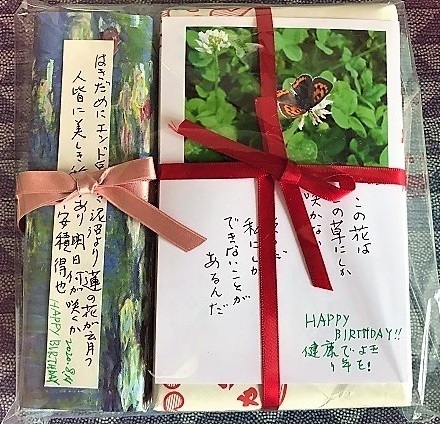 はきだめにエンド
泥沼より 蓮の花が育つ
人皆に美しき
あり 明日 何が咲くか
安積得也
HAPPY BIRTHDAY
2020.8/4
この花は
の草にしか
咲かない
私にしか
できないことが
あるんだ
HAPPY
BIRTHDAY!!
健康でよき
1年を!